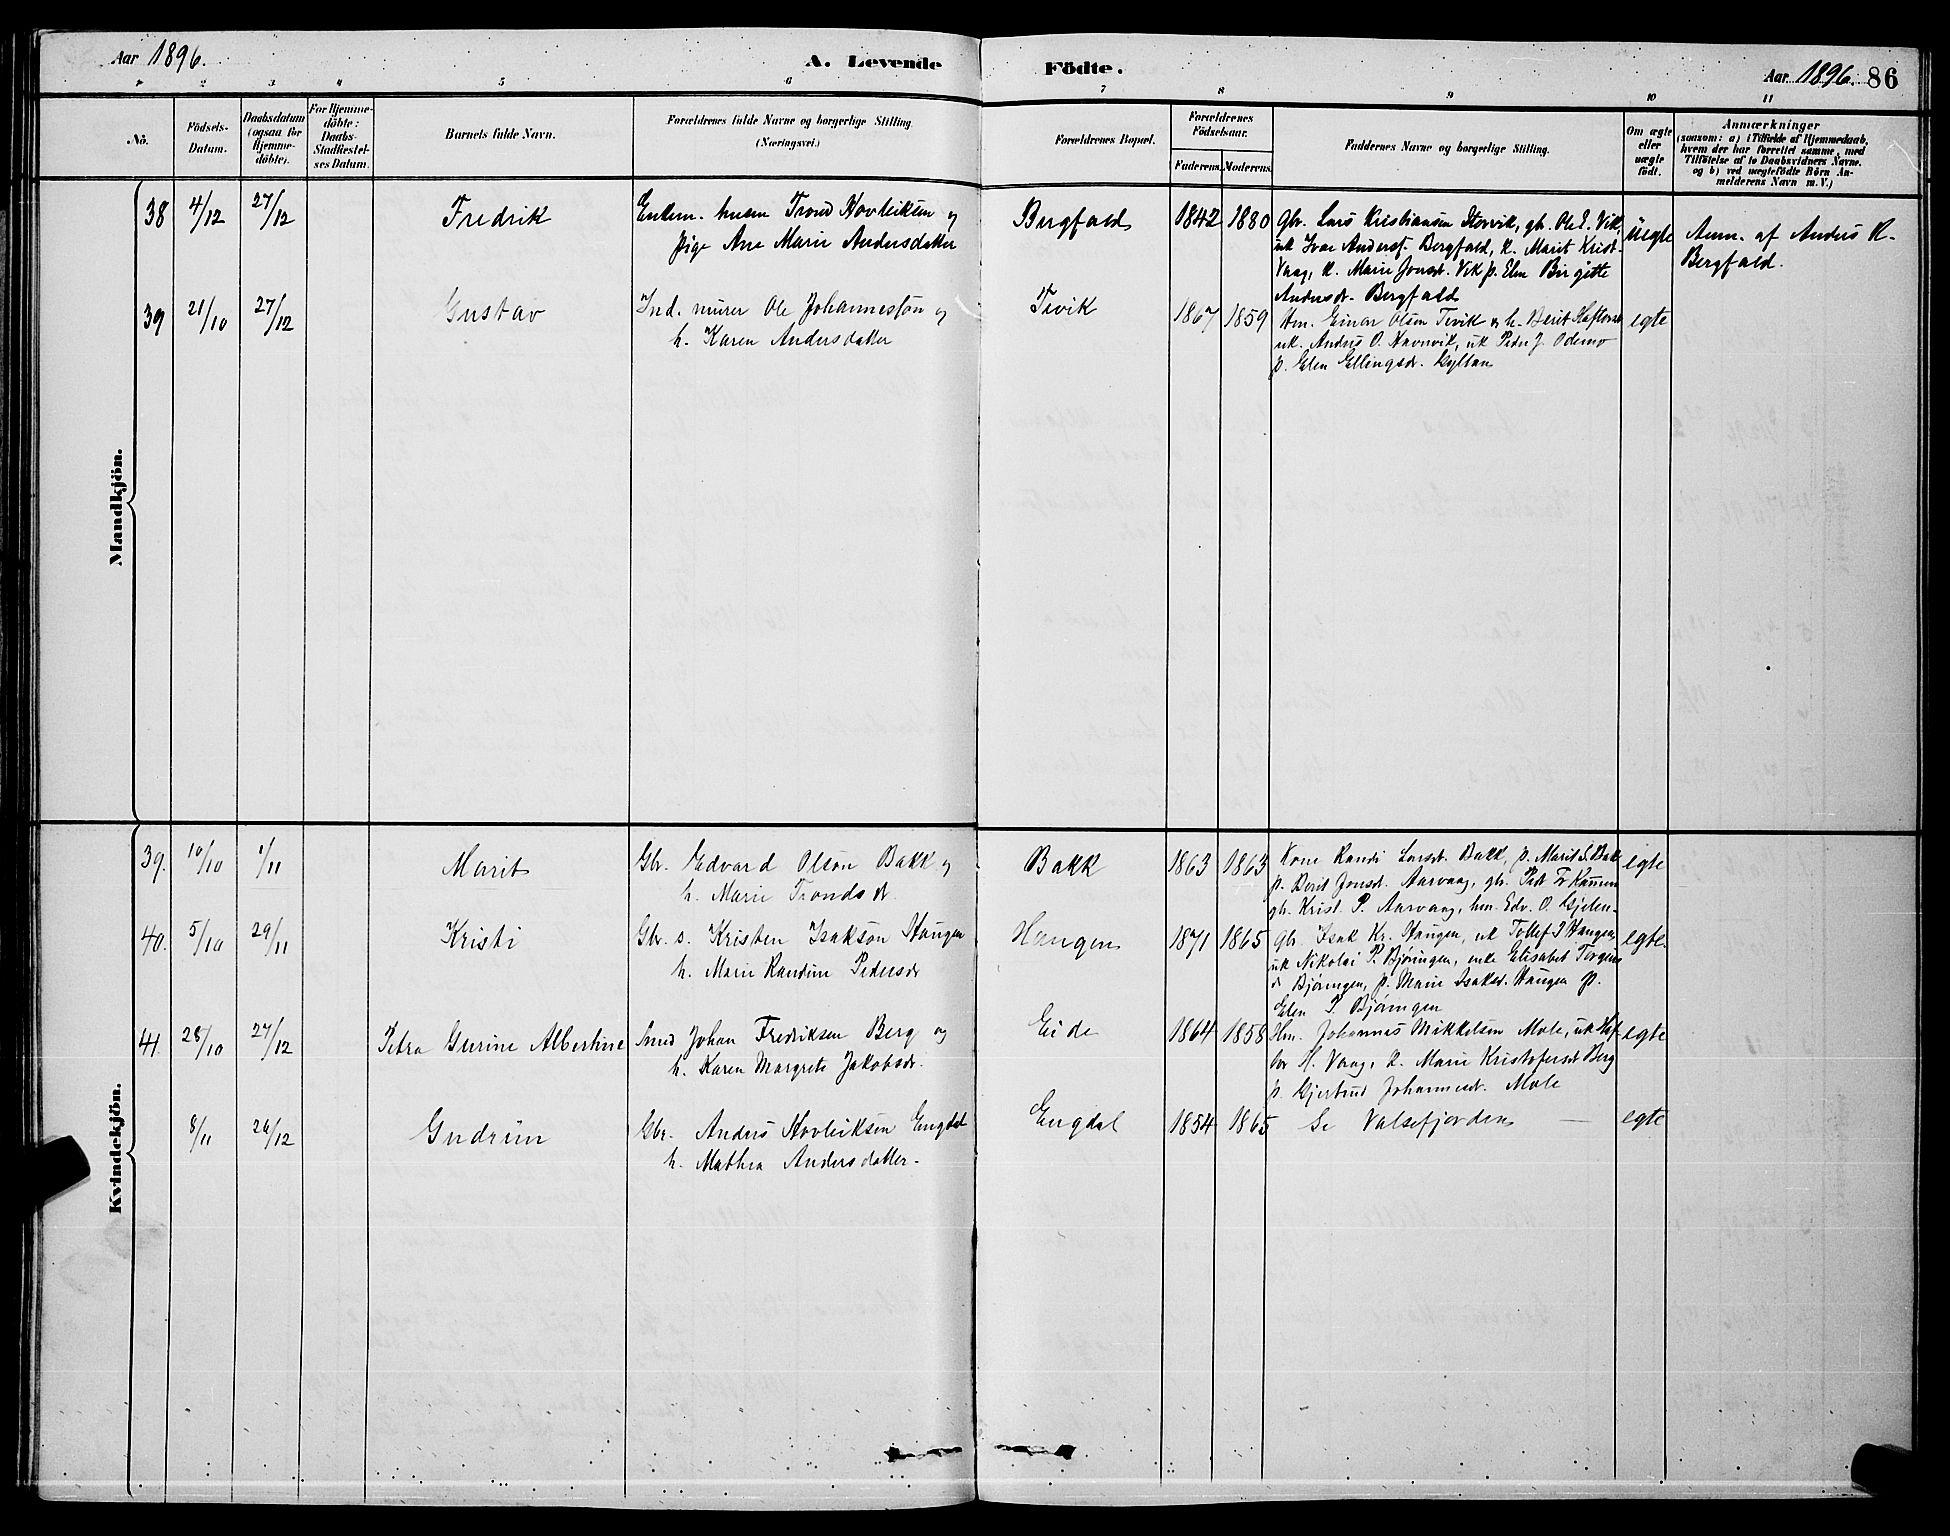 Aar 1896.
A. Levende Födte.
Aar 1896. 86
1 2 3 4 5 6 7 8 9 10 11
Nö.
Födsels-Datum.
Daabsdatum (ogsaa för Hjemme-döbte).
For Hjemme-döbte: Daabs-Stadfæstel-ses Datum.
Barnets fulde Navn.
Forældrenes fulde Navne og borgerlige Stilling (Næringsvei.)
Forældrenes Bopæl.
Forældrenes Födselsaar.
Faderens. Moderens.
Faddernes Navne og borgerlige Stilling.
Om ægte eller uægte födt.
Anmærkninger
(saasom: a) i Tilfælde af Hjemmedaab,
hvem der har forrettet samme, med
Tilföielse af to Daabsvidners Navne.
og b) ved uægtefödte Börn An-
melderens Navn m. V.)
Mandkjön.
38 4/12 27/12 Fredrik
Enkem. husm Trond Hovleiksen og
Pige Ane Marie Andersdatter
Bergfald 1842 1880
Gbr. Lars Kristiansen Storvik, gb. Ole E. Vik,
uk Ivar Andersf. Bergfald, K. Marit Krist-
Vaag, K. Marie Jonsd. Vik p. Elen Birgitte
Andersdr. Bergfald
uegte
Anm. af Anders K.
Bergfald.
39 21/10 27/12 Gustav
Ind. murer Ole Johanneson og
h. Karen Andersdatter
Tevik 1867 1859
Hm. Einar Olsen Tevik & h. Berit
uk. Anders O. Havnvik, uk Peder J. Odemo
p. Elen Ellingsdr. Gyltan
egte
Kvindekjön.
39. 10/10 1/11 Marit
Gbr. Edvard Olson Bakk og
h. Marie Trondsdr
Bakk 1863 1863
Kone Randi Larsdt. Bakk, p. Marit S. Bak
p. Berit Jonsd. Aarvaag, gb. Pedr
gb. Krist. P. Aarvaag, hm. Edv. O. Gjelen-
egte
40. 5/10 29/11 Kristi
Gbr. s. Kristen Isakson Haugen
h. Marie Randine Pedersdr
Haugen 1871 1865
Gbr. Isak Kr. Haugen, uk Tollef I Haugen,
uk Nikolai P. Bjøringen, enke Elisabet
Bjøringen, p. Marie Isaksd. Haugen p.
Elen P. Bjøringen
egte.
41. 28/10 27/12 Petra Gurine Albertine
Smed Johan Fredriksen Berg og
h. Karen Margrete Jakobsdr.
Eide 1864 1858
Hm. Johannes Mikkelsen Mole, uk
H. Vaag, K. Marie Kristofersdt Berg
p. Gjertrud Johannesdt. Mole
egte
8/11 26/12 Gudrun
Gbr. Anders Hovleiksen Engdal
h. Mathea Andersdatter-
Engdal 1854 1865
Se Valsefjorden —
egte